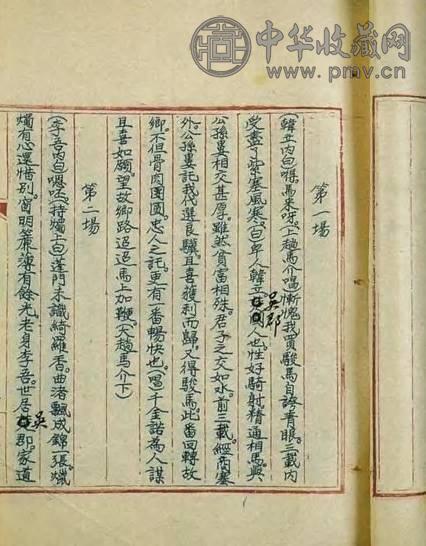 中华收藏网
www.pmv.cn
第一場
(韓立內白)嘚馬來呀。(上趟馬介唱)慚愧我買駿馬自誇青眼。三載內
受盡了紫塞風寒。(白)卑人韓立。吳郡人也。性好騎射精通相馬。與
公孫晏相交甚厚。雖然貧富相殊。君子之交如水。前三載。經商塞
外。公孫晏託我代選良驥。且喜獲利而歸。又得駿馬。此番回轉故
鄉。不但骨肉團圓。忠人之託。更有一番暢快也。(唱)千金諾為人謀
且喜如願。望故鄉路迢迢馬上加鞭。(大趟馬介下)
第二場
(李吾內白)嗯吭。(持燭上白)蓬門未識綺羅香。曲渚飄成錦一張。蠟
燭有心還惜別。窗明簾薄有餘光。老身李吾。世居吳郡。家道